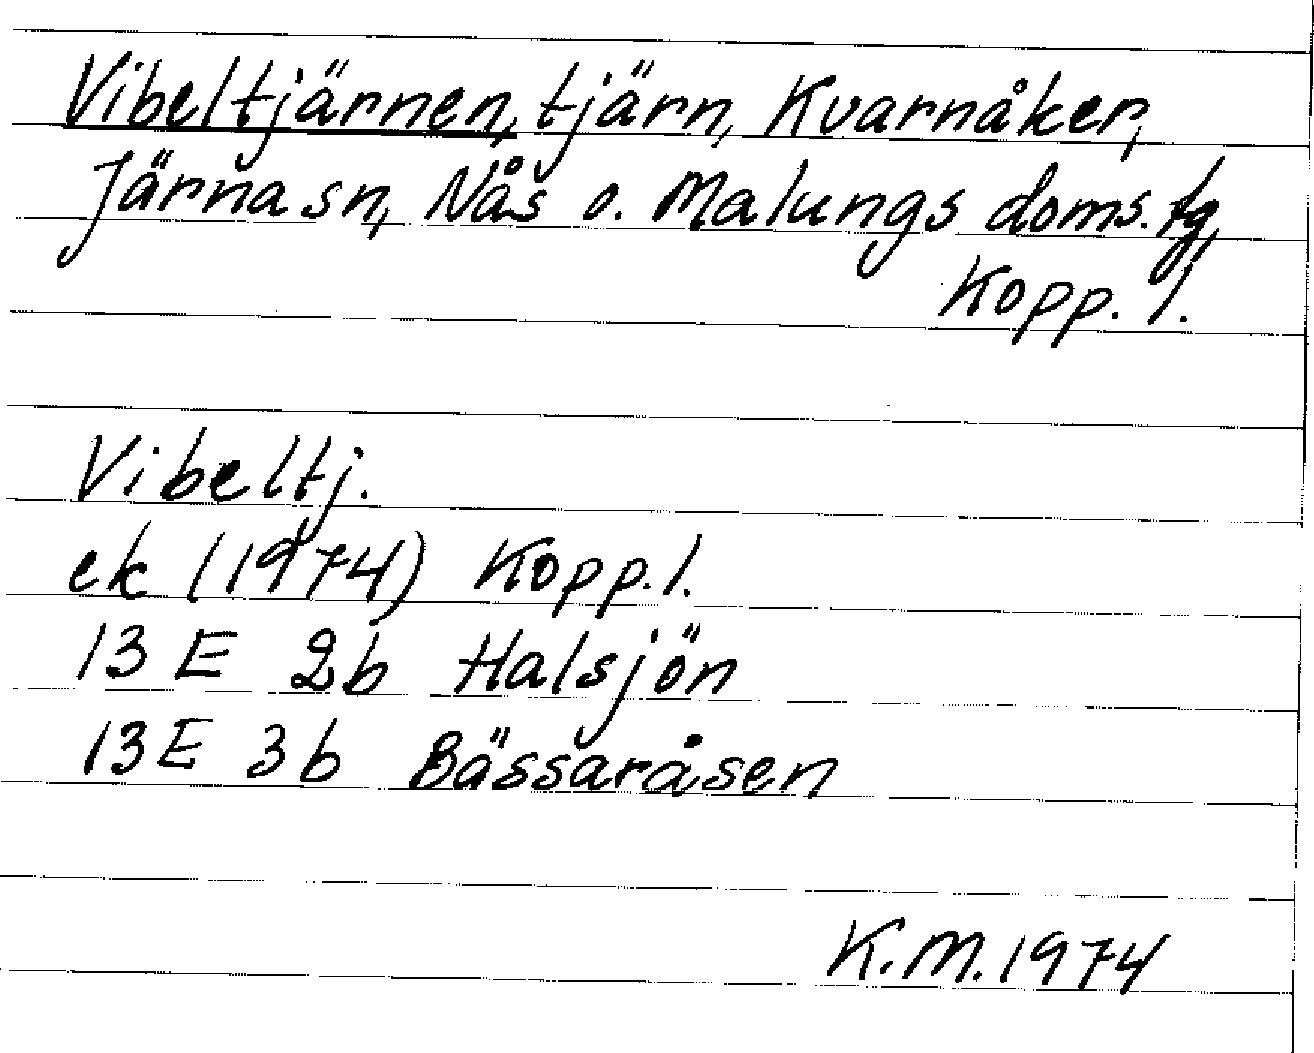 Vibeltjärnen, tjärn, Kvarnåker,
Järna sn, Nås o. Malungs doms. tg,
Kopp. l.
Vibeltj.
ek (1974) Kopp. l.
13 E 2b Halsjön
13E 3b Bässaråsen
K.M. 1974